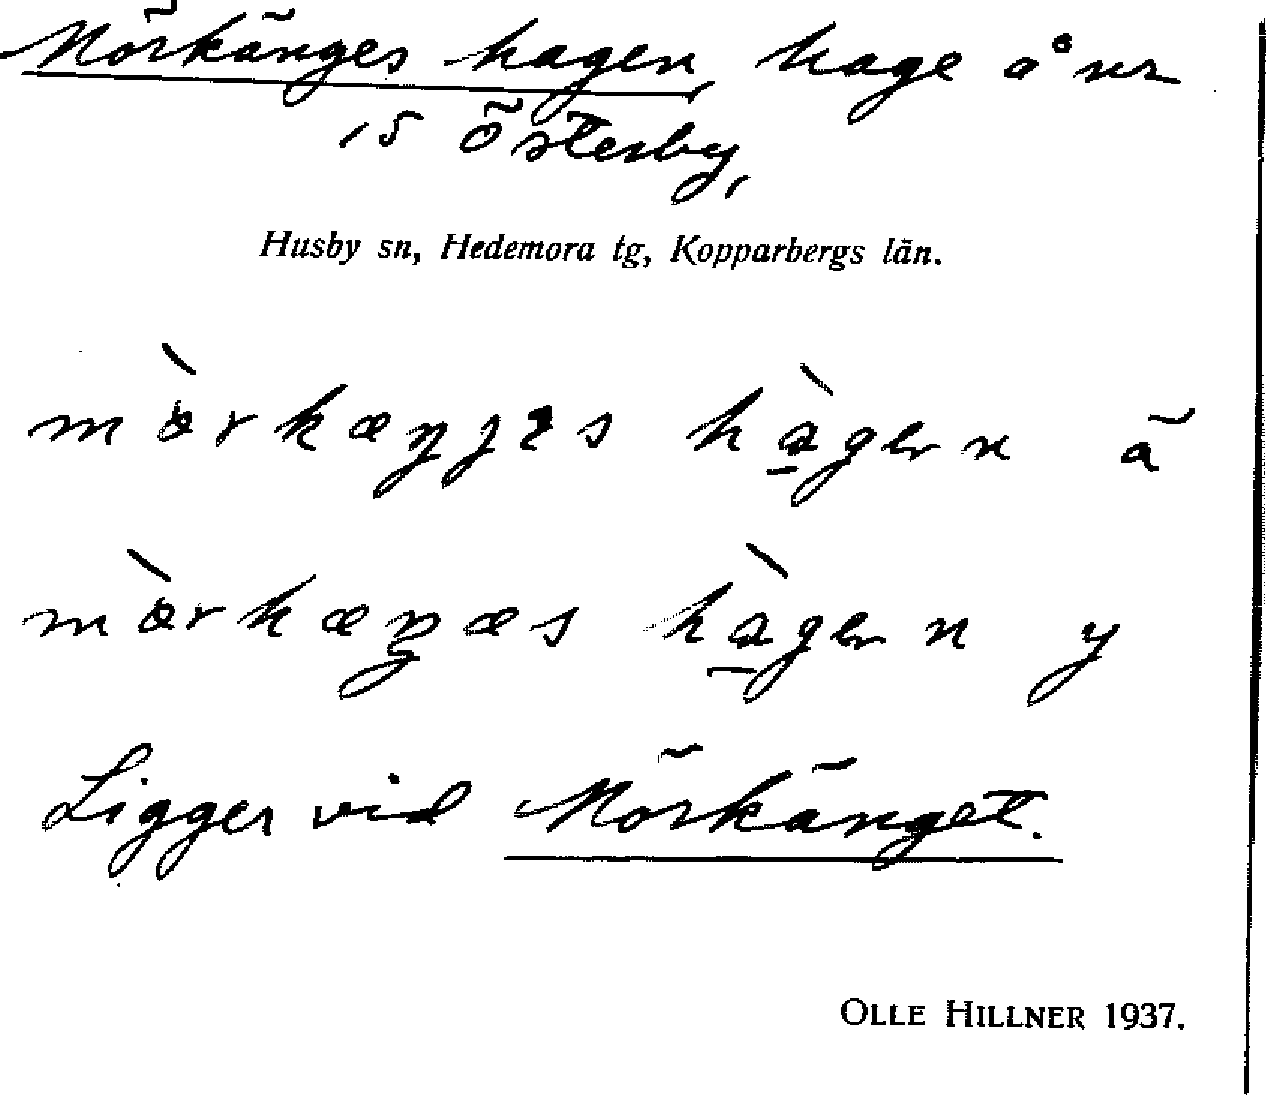 Mörkänges hagen, hage å nr
15 Österby,
Husby sn, Hedemora tg, Kopparbergs län.
mòrkæŋɟəs hàgen ä
mòrkæŋæs hàgen y
Ligger vid Mörkänget.
OLLE HILLNER 1937.